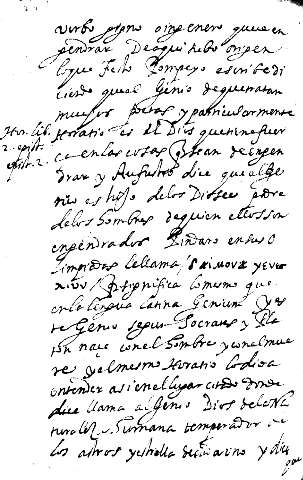 Verbo gigno o ingenero que es en
gendrar De aqui hubo origen
lo que Festo Pompeyo escribe di
ciendo qual Genio de quenatan
muchos Poetas y particularmente
Hor. lib. 2. epist. epist. 2.
Horatio es el Dios que tiene fuer
ça en las cosas que han de engen
drar y Augustio dice que al Ge
nio es hijo de los Dioses padre
de los hombres de quien ellos son
engendrados Pindaro en sus O
limpiadas le llama
significa lo mismo que
en la lengua latina Genium y es
te Genio segun Socrates y Pla
ton nace con el hombre y con el mue
re y el mesmo Horatio lo dio a
entender asi en el lugar citado donde
dice llama al Genio Dios de la Na
turaleza humana temperador de
los astros y estrella de cada uno y dice
que